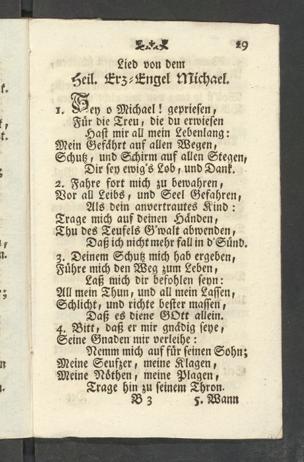 29
Lied von dem
Heil. Erz-Engel Michael.
1. Sey o Michael! gepriesen,
Für die Treu, die du erwiesen
Hast mir all mein Lebenlang:
Mein Gefährt auf allen Wegen,
Schutz, und Schirm auf allen Stegen,
Dir sey ewig's Lob, und Dank.
2. Fahre fort mich zu bewahren,
Vor all Leibs, und Seel Gefahren,
Als dein anvertrautes Kind:
Trage mich auf deinen Händen,
Thu des Teufels G'walt abwenden,
Daß ich nicht mehr fall in d'Sünd.
3. Deinem Schutz mich hab ergeben,
Führe mich den Weg zum Leben,
Laß mich dir befohlen seyn:
All mein Thun, und all mein Lassen,
Schlicht, und richte bester massen,
Daß es diene GOtt allein.
4. Bitt, daß er mir gnädig seye,
Seine Gnaden mir verleihe:
Nemm mich auf für seinen Sohn;
Meine Seufzer, meine Klagen,
Meine Nöthen, meine Plagen,
Trage hin zu seinem Thron.
B 3 5. Wann